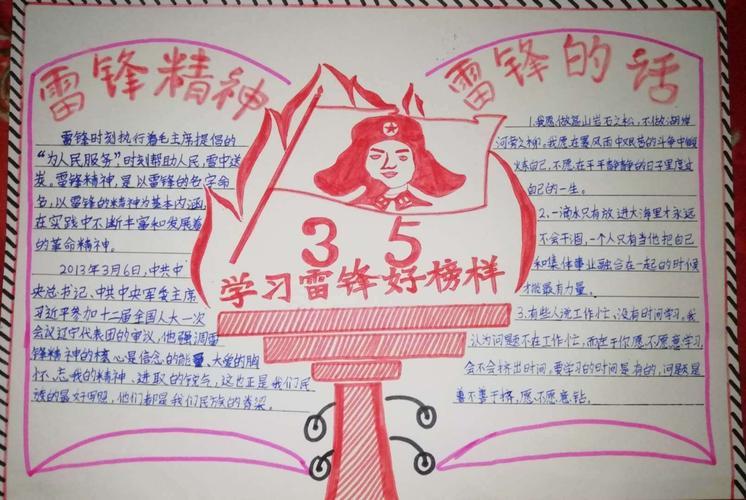 雷锋精神
雷锋时刻执行着毛主席提倡的
“为人民服务”，时刻帮助人民，雪中送
炭。雷锋精神，是以雷锋的名字命
名，以雷锋的精神为基本内涵，
在实践中不断丰富和发展着
的革命精神。
2013年3月6日，中共中
央总书记、中共中央军委主席
习近平参加十二届全国人大一次
会议辽宁代表团的审议，他强调雷
锋精神的核心是信念的能量、大爱的胸
怀、忘我的精神、进取的锐气，这也正是我们民
族的最好写照，他们都是我们民族的脊梁。
3 5
学习雷锋好榜样
雷锋的话
1.我愿做高山岩石之松，不做湖岸
河旁之柳。我愿在暴风雨中艰苦的斗争中锻
炼自己，不愿在平平静静的日子里度过
自己的一生。
2、一滴水只有放进大海里才永远
不会干涸，一个人只有当他把自己
和集体事业融合在一起的时候
才能最有力量。
3.有些人说工作忙、没有时间学习。我
认为问题不在工作忙，而在于你愿不愿意学习，
会不会挤出时间。要学习的时间是有的，问题是
善不善于挤，愿不愿意钻。